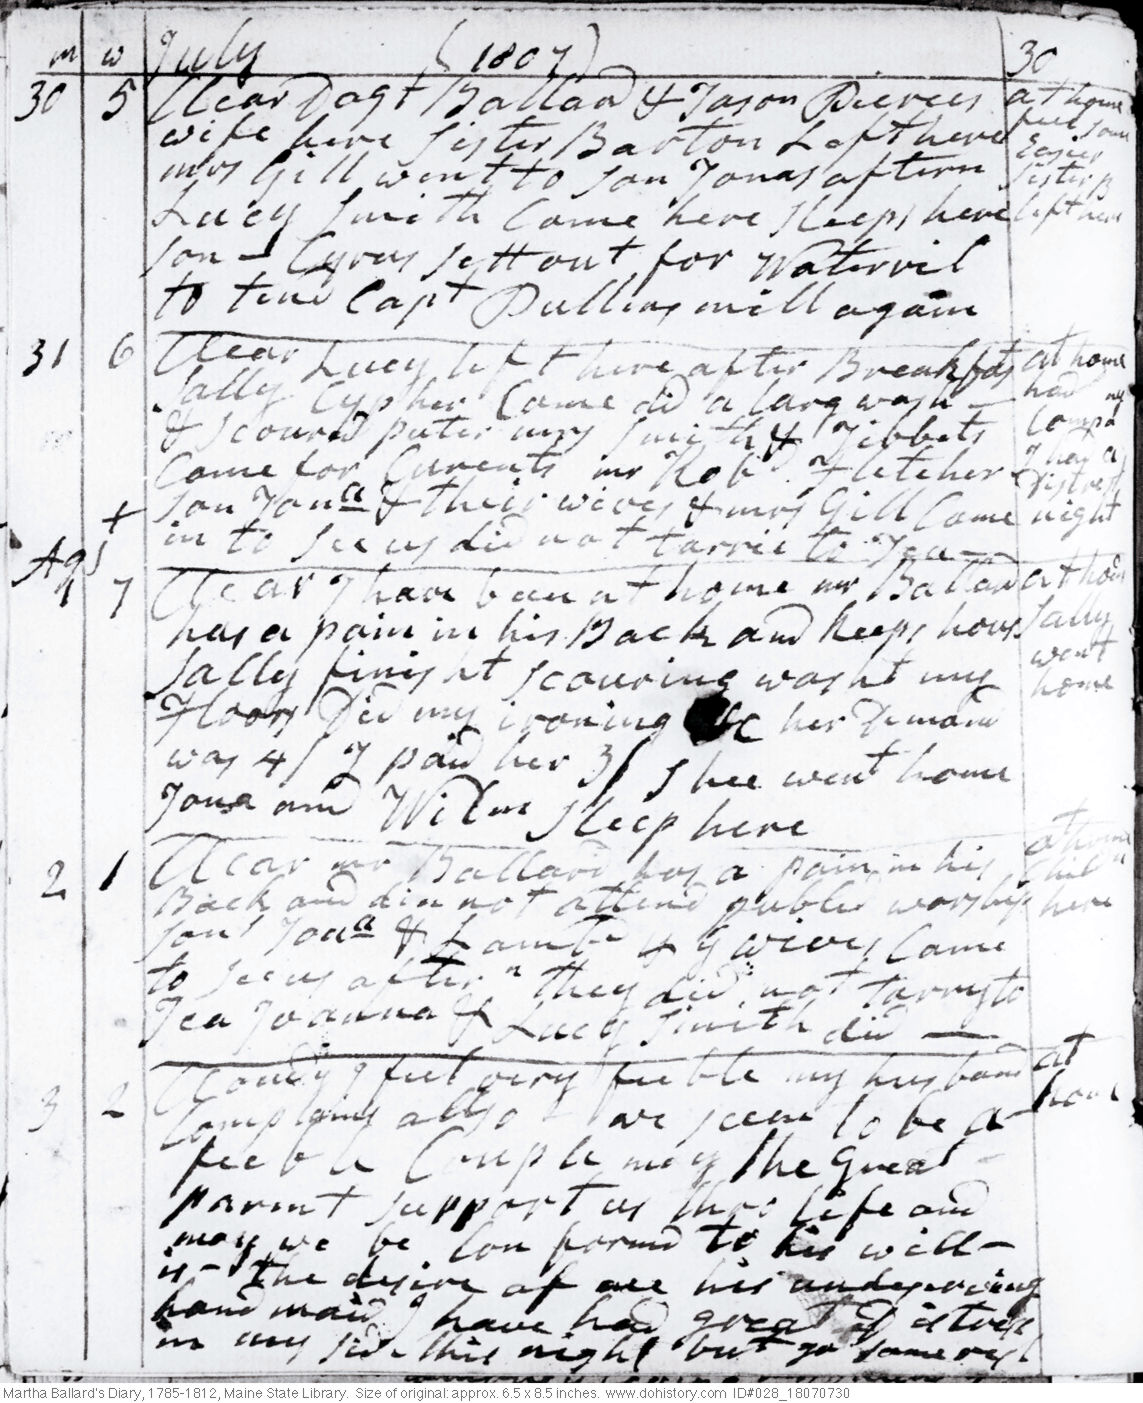 m w July (1807) 30
30 5 Clear Dagt Ballad & Jason Pierces at home
wife here Sister Barton Left here feel some
mrs Gill went to son Jonas aftern Easier
Lucy Smith Come here sleeps here Sister B
son – Cyrus sett out for Watervil left here
to tend Capt Pullins mill again
31 6 Clear Lucy left here after Breakfast at home
Sally Cypher Came did a larg wash – had my
& scourd puter mrs Smith & Tibbets Compa
Came for Currents mr Robd Fletcher I had a
son Jona & their wives & mrs Gill Came Distrest
+ in to see us did not tarrie to Tea – night
Agst
1 7 Clear I have been at home mr Ballad at hom
has a pain in his Back and keeps hous Sally
Sally finisht scouring washt my went
Floors Did my ironing &c her Demand home
was 4/ I paid her 3/ Shee went home
Jona and Wilm Sleep here
2 1 Clear mr Ballard has a pain in his at home
Back and did not attend public worship Childn here
sons Jona & Lambd & y wives Came
to see us aftern they did not tarry to
Tea Joanna & Lucy Smith did –
3 2 Cloudy I feel very feeble my husband at
Complains allso we seem to be a home
feeble Couple may the Great
parent support us thro life and
may we be Conformd to his will –
is – the desire of me his undeserving
hand maid I have had great Distress
in my side this night but go some rest
Martha Ballard's Diary, 1785-1812, Maine State Library. Size of original: approx. 6.5 x 8.5 inches. www.dohistory.com ID#028_18070730